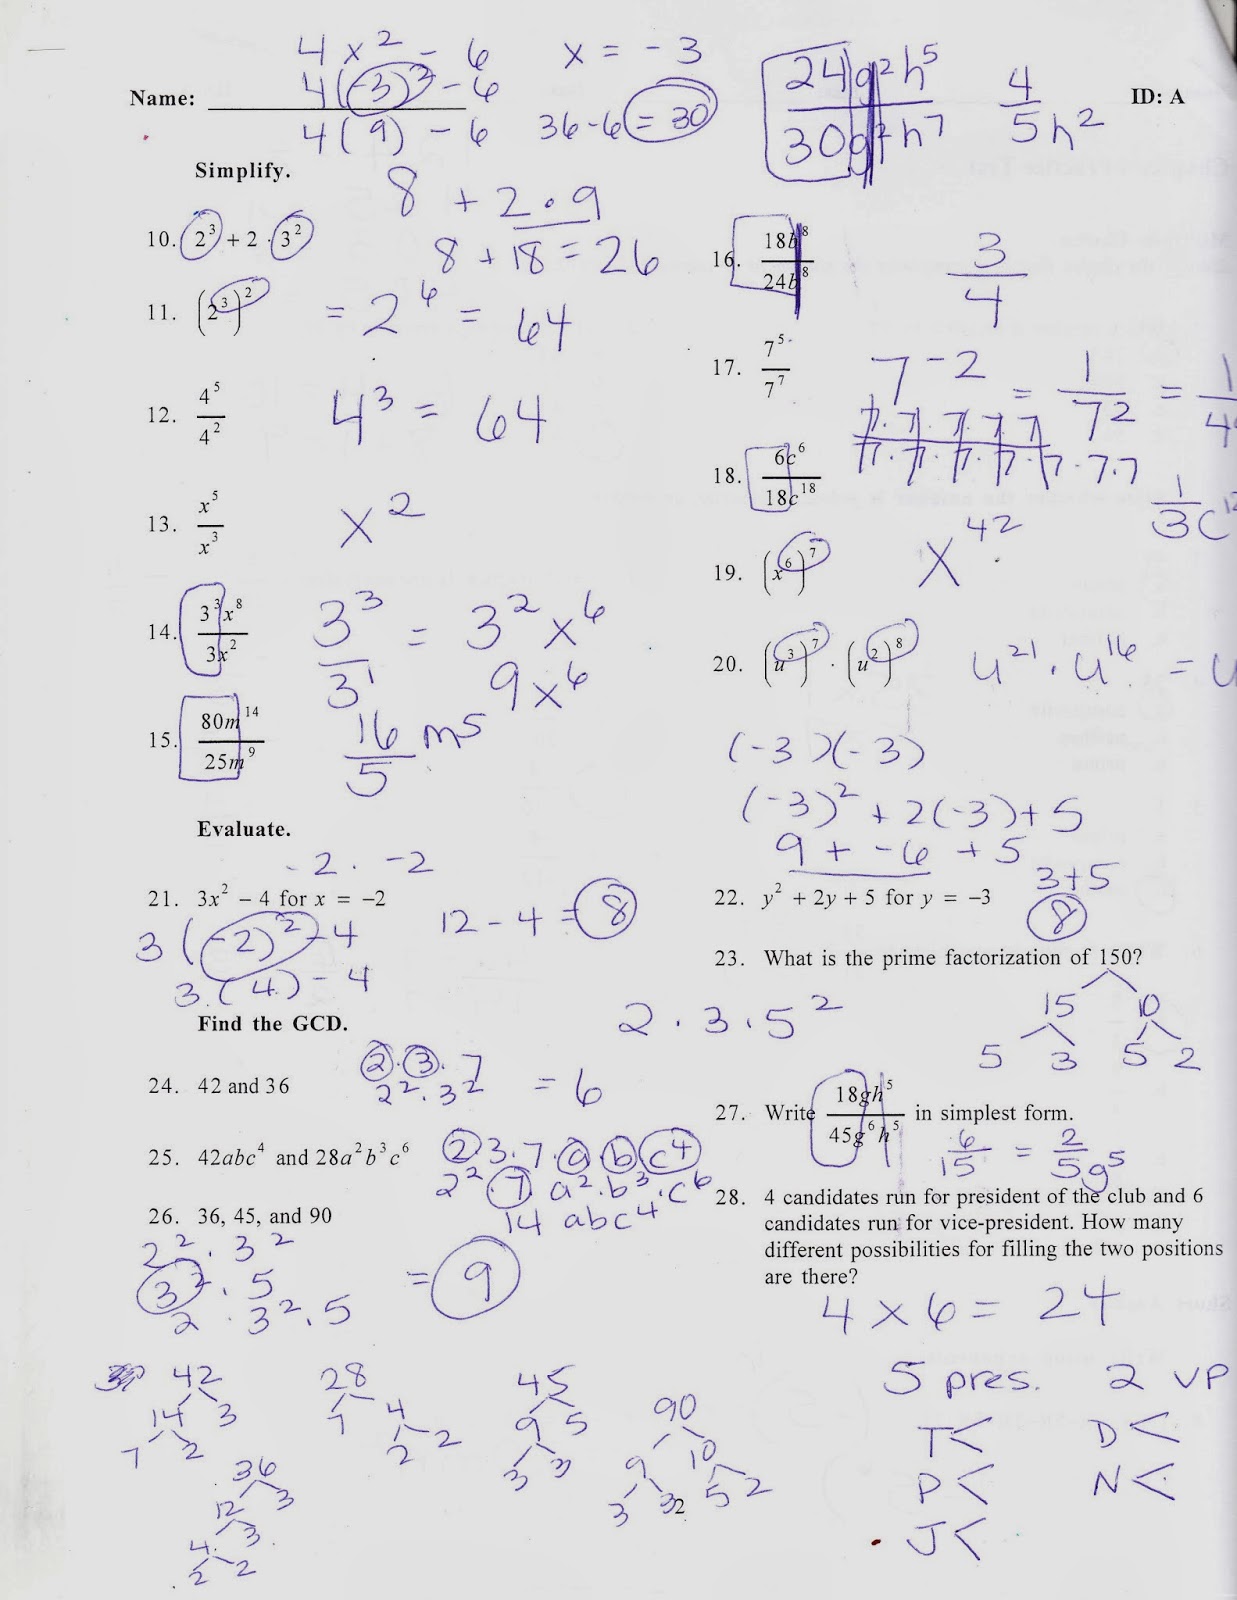 4x² - 6 x = -3
4(-3)² - 6
4(9) - 6 36-6 = 30
24g²h⁵ / 30g²h⁷ 4 / 5h²
Name: ID: A
Simplify.
8 + 2 · 9
8 + 18 = 26
10. 2³ + 2 · 3²
11. (2³)² = 2⁶ = 64
12. 4⁵ / 4² 4³ = 64
13. x⁵ / x³ x²
14. 3³x⁸ / 3x² 3³ / 3¹ = 3²x⁶
9x⁶
15. 80m¹⁴ / 25m⁹ 16 / 5 m5
16. 18b⁸ / 24b⁸ 3 / 4
17. 7⁵ / 7⁷ 7⁻² = 1 / 7² = 1 / 4
7·7·7·7·7 / 7·7·7·7·7·7·7
18. 6c⁶ / 18c¹⁸ 1 / 3c¹²
19. (x⁶)⁷ x⁴²
20. (u³)⁷ · (u²)⁸ u²¹ · u¹⁶ = u
Evaluate.
-2 · -2
21. 3x² - 4 for x = -2
3(-2)² - 4 12 - 4 = 8
3(4) - 4
(-3)(-3)
(-3)² + 2(-3) + 5
9 + -6 + 5
3+5
8
22. y² + 2y + 5 for y = -3
23. What is the prime factorization of 150?
15 10
5 3 5 2
2 · 3 · 5²
Find the GCD.
24. 42 and 36
2·3·7
2²·3² = 6
25. 42abc⁴ and 28a²b³c⁶
2 3·7·a·b·c4
2²·7 a²·b³·c⁶
14 abc⁴
26. 36, 45, and 90
2²·3²
3²·5
2·3²·5
= 9
27. Write 18gh⁵ / 45g⁶h⁵ in simplest form.
6 / 15 = 2 / 5g⁵
28. 4 candidates run for president of the club and 6
candidates run for vice-president. How many
different possibilities for filling the two positions
are there?
4 x 6 = 24
42
14 3
7 2
36
12 3
4 3
2 2
28
7 4
2 2
45
9 5
3 3
90
9 10
3 3 5 2
5 pres. 2 VP
T< D<
P< N<
J<